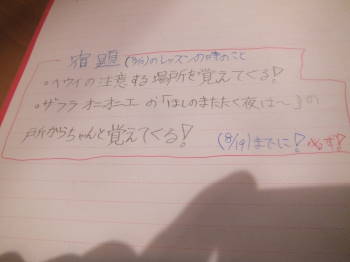 宿題 (8/12)のレッスンの時のこと
・ヘウィの注意する場所を覚えてくる!
・ザフラ オニオニエ の「ほしのまたたく夜は〜」の
所からちゃんと覚えてくる!
(8/19)までに! 必ず!